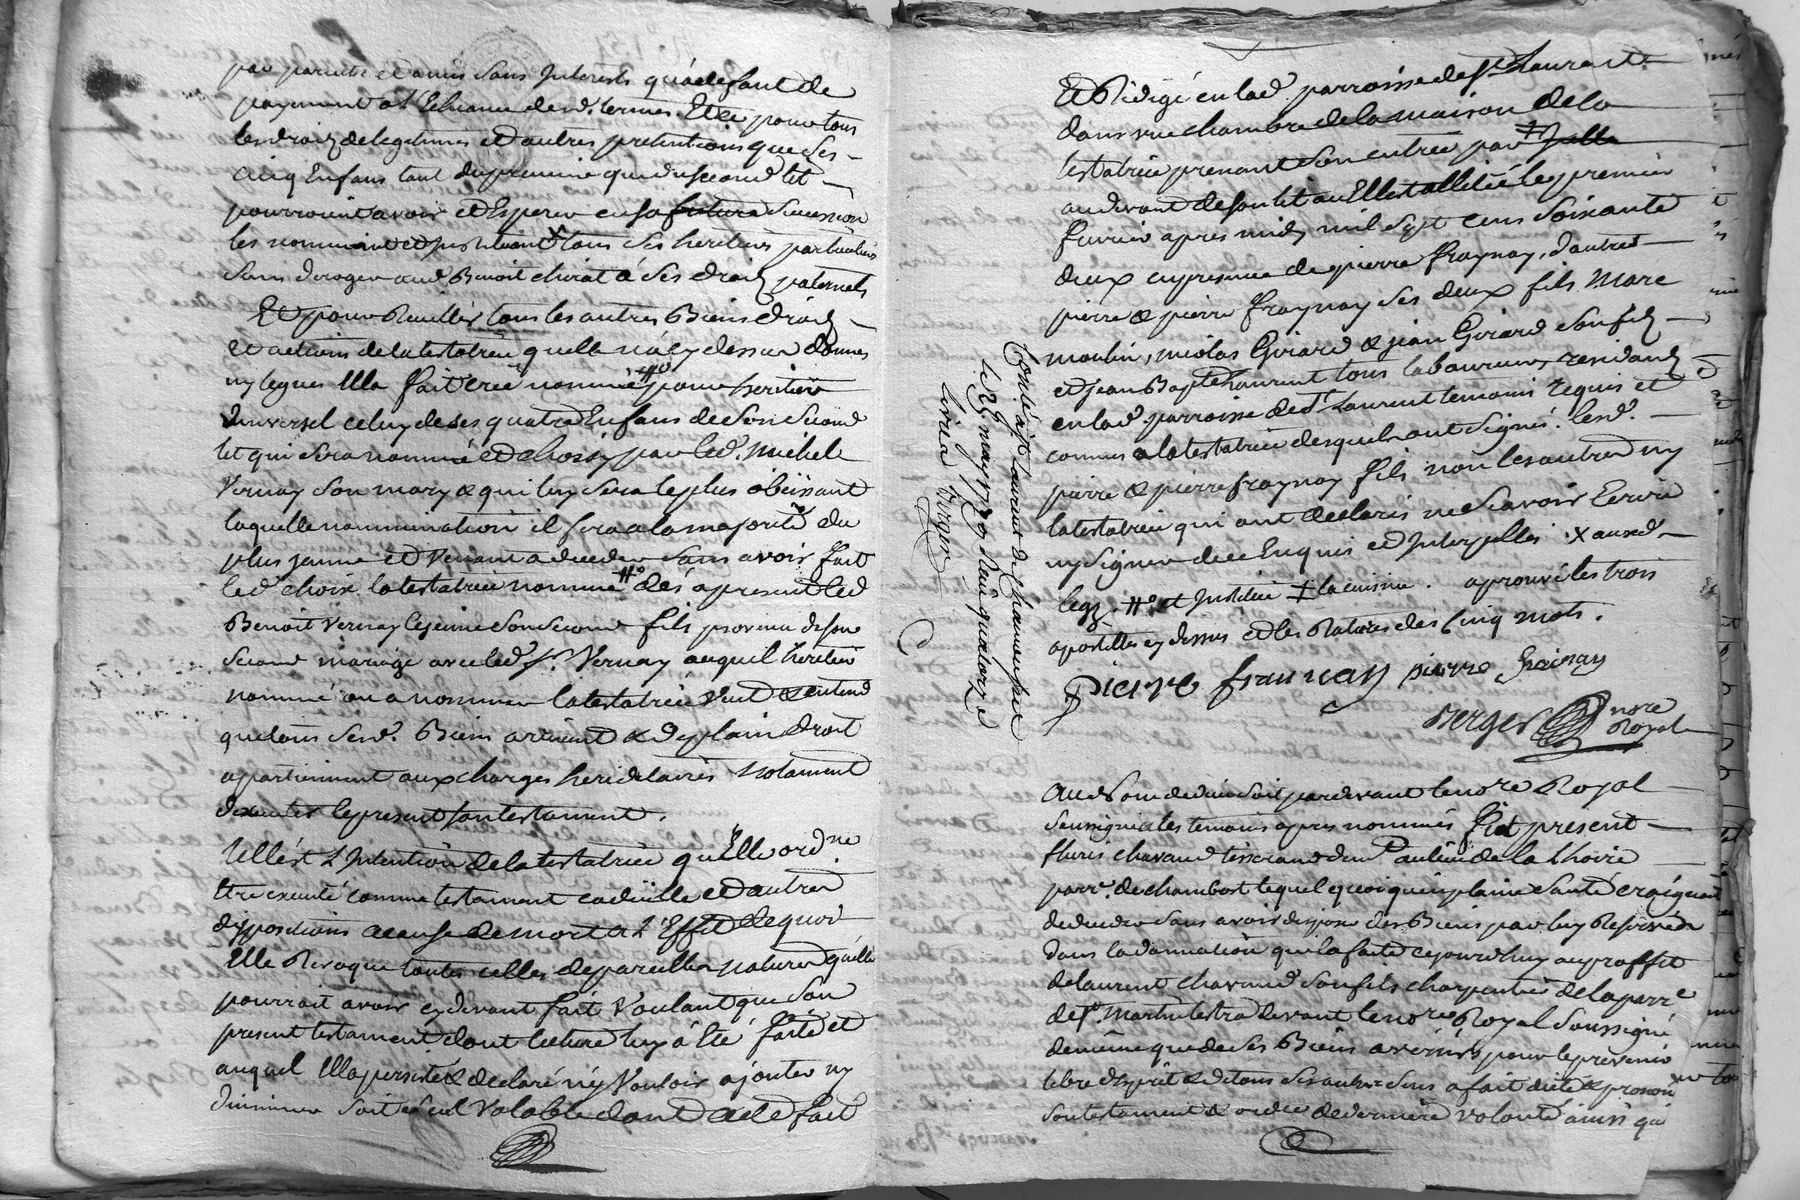 par parents et amis sans Interests qu'a deffaut de
payement a l'Echeance desd. termes. Et ce pour tous
les droitz de legitimes et autres pretentions que ses
cinq Enfans tant du premier que du second lit
pourroient avoir et Esperer en sa future succession
les nommant et Instituant x tous ses heritiers particuliers
sans deroger aud Benoit chirat a ses droitz paternels
Et pour Recuillir tous les autres Biens droitz
et actions de la testatrice quelle n'a cy dessus donnés
ny legués Elle fait crée nomme #o pour heritier
universel celuy de ses quatre Enfans de son second
lit qui sera nommé et choisy par led. michel
Vernay son mary & qui luy sera le plus obéissant
laquelle nommination il fera a la majorité du
plus jeune et venant a deceder sans avoir fait
led. choix la testatrice nomme #o dés apresent led
Benoit Vernay le jeune son second fils provenu de son
second mariage avec led. Sr. Vernay auquel heritier
nommé ou a nommer la testatrice veut & entend
que tous sesd. Biens arrivent & de plain droit
apartiennent aux charges hereditaires notament
d'executer le present son testament.
Telle est l'Intention de la testatrice qu'Elle ordne
Etre executé comme testament codicille et autres
dispositions a cause de mort a l'Effet de quoi
Elle Revoque toutes celles de pareilles natures qu'elle
pourroit avoir cy devant fait Voulant que son
present testament dont lecture luy a été faite et
auquel Ella persisté & declaré n'y Vouloir ajouter ny
diminuer soit le seul Valable dont acte fait
Et Redigé en lad. parroisse de St. Laurent
dans une chambre de la maison de la
testatrice prenant son entrée par ‡
au devant de son lit ou Elle est allitée le premier
fevrier apres midy mil sept cens soixante
deux en presence de pierre fraynay, d'autres
pierre & pierre fraynay ses deux fils marc
moulin, nicolas Girard & jean Girard son fils
et jean Bapte Laurent tous laboureurs residants
en lad. parroisse de St Laurent temoins requis et
connus a la testatrice desquels ont signés lesd.
pierre & pierre fraynay fils non les autres ny
la testatrice qui ont declaris ne sçavoir Ecrire
ny signer de ce Enquis et Interpellés x ausd
legz. #o et Institue ‡ la cuisine. aprouvé les trois
apostilles cy dessus et les Ratures des cinq mots.
pierre franay pierre frainay
Berger nore
Royal
Controlé a St Laurent de chamousset
le 29 may 1779 Reçu quatorze
livres Berger
Au Nom de dieu soit pardevant le nore Royal
soussigné & les temoins apres nommés fut present
fleuris chavand tisserand du lieu de la Thoire
parr. de chambost lequel quoi qu'en plaine santé craignant
de deceder sans avoir disposé des Biens par luy Reservés
dans la donnation que la faite cejourdhuy au proffit
de laurent chavand son fils charpentier de la parre
de St. martin lestra devant le nore Royal soussigné
de même que de ses Biens a venir pour le present
libre d'Esprit & de tous ses autres sens a fait dicté & prononcé
son testament & ordre de derniere volonté ainsi qui